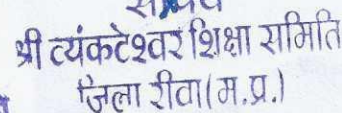 श्री व्यंकटेश्वर शिक्षा समिति
जिला रीवा (म.प्र.)